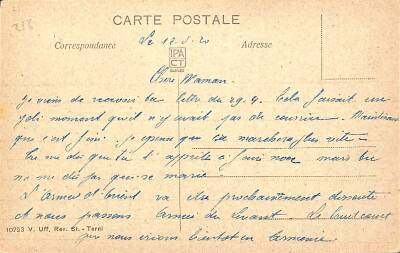 218
CARTE POSTALE
Correspondance
Adresse
IPA
CT
Le 17.5.20
Chère Maman.
Je viens de recevoir ta lettre du 29.4. Cela faisait un
joli moment qu'il n'y avait pas de courrier. Maintenant
que c'est fini. je pense que ça marchera plus vite.
Tu me dis que tu t'apprête à faire noce mais tu
ne me dis pas qui se marie.
L'armée d'Orient va être prochainement dissoute
et nous passons Armée du Levant. Le bruit court
que nous irions bientôt en Arménie
10753 V. Uff. Rev. St. - Terni